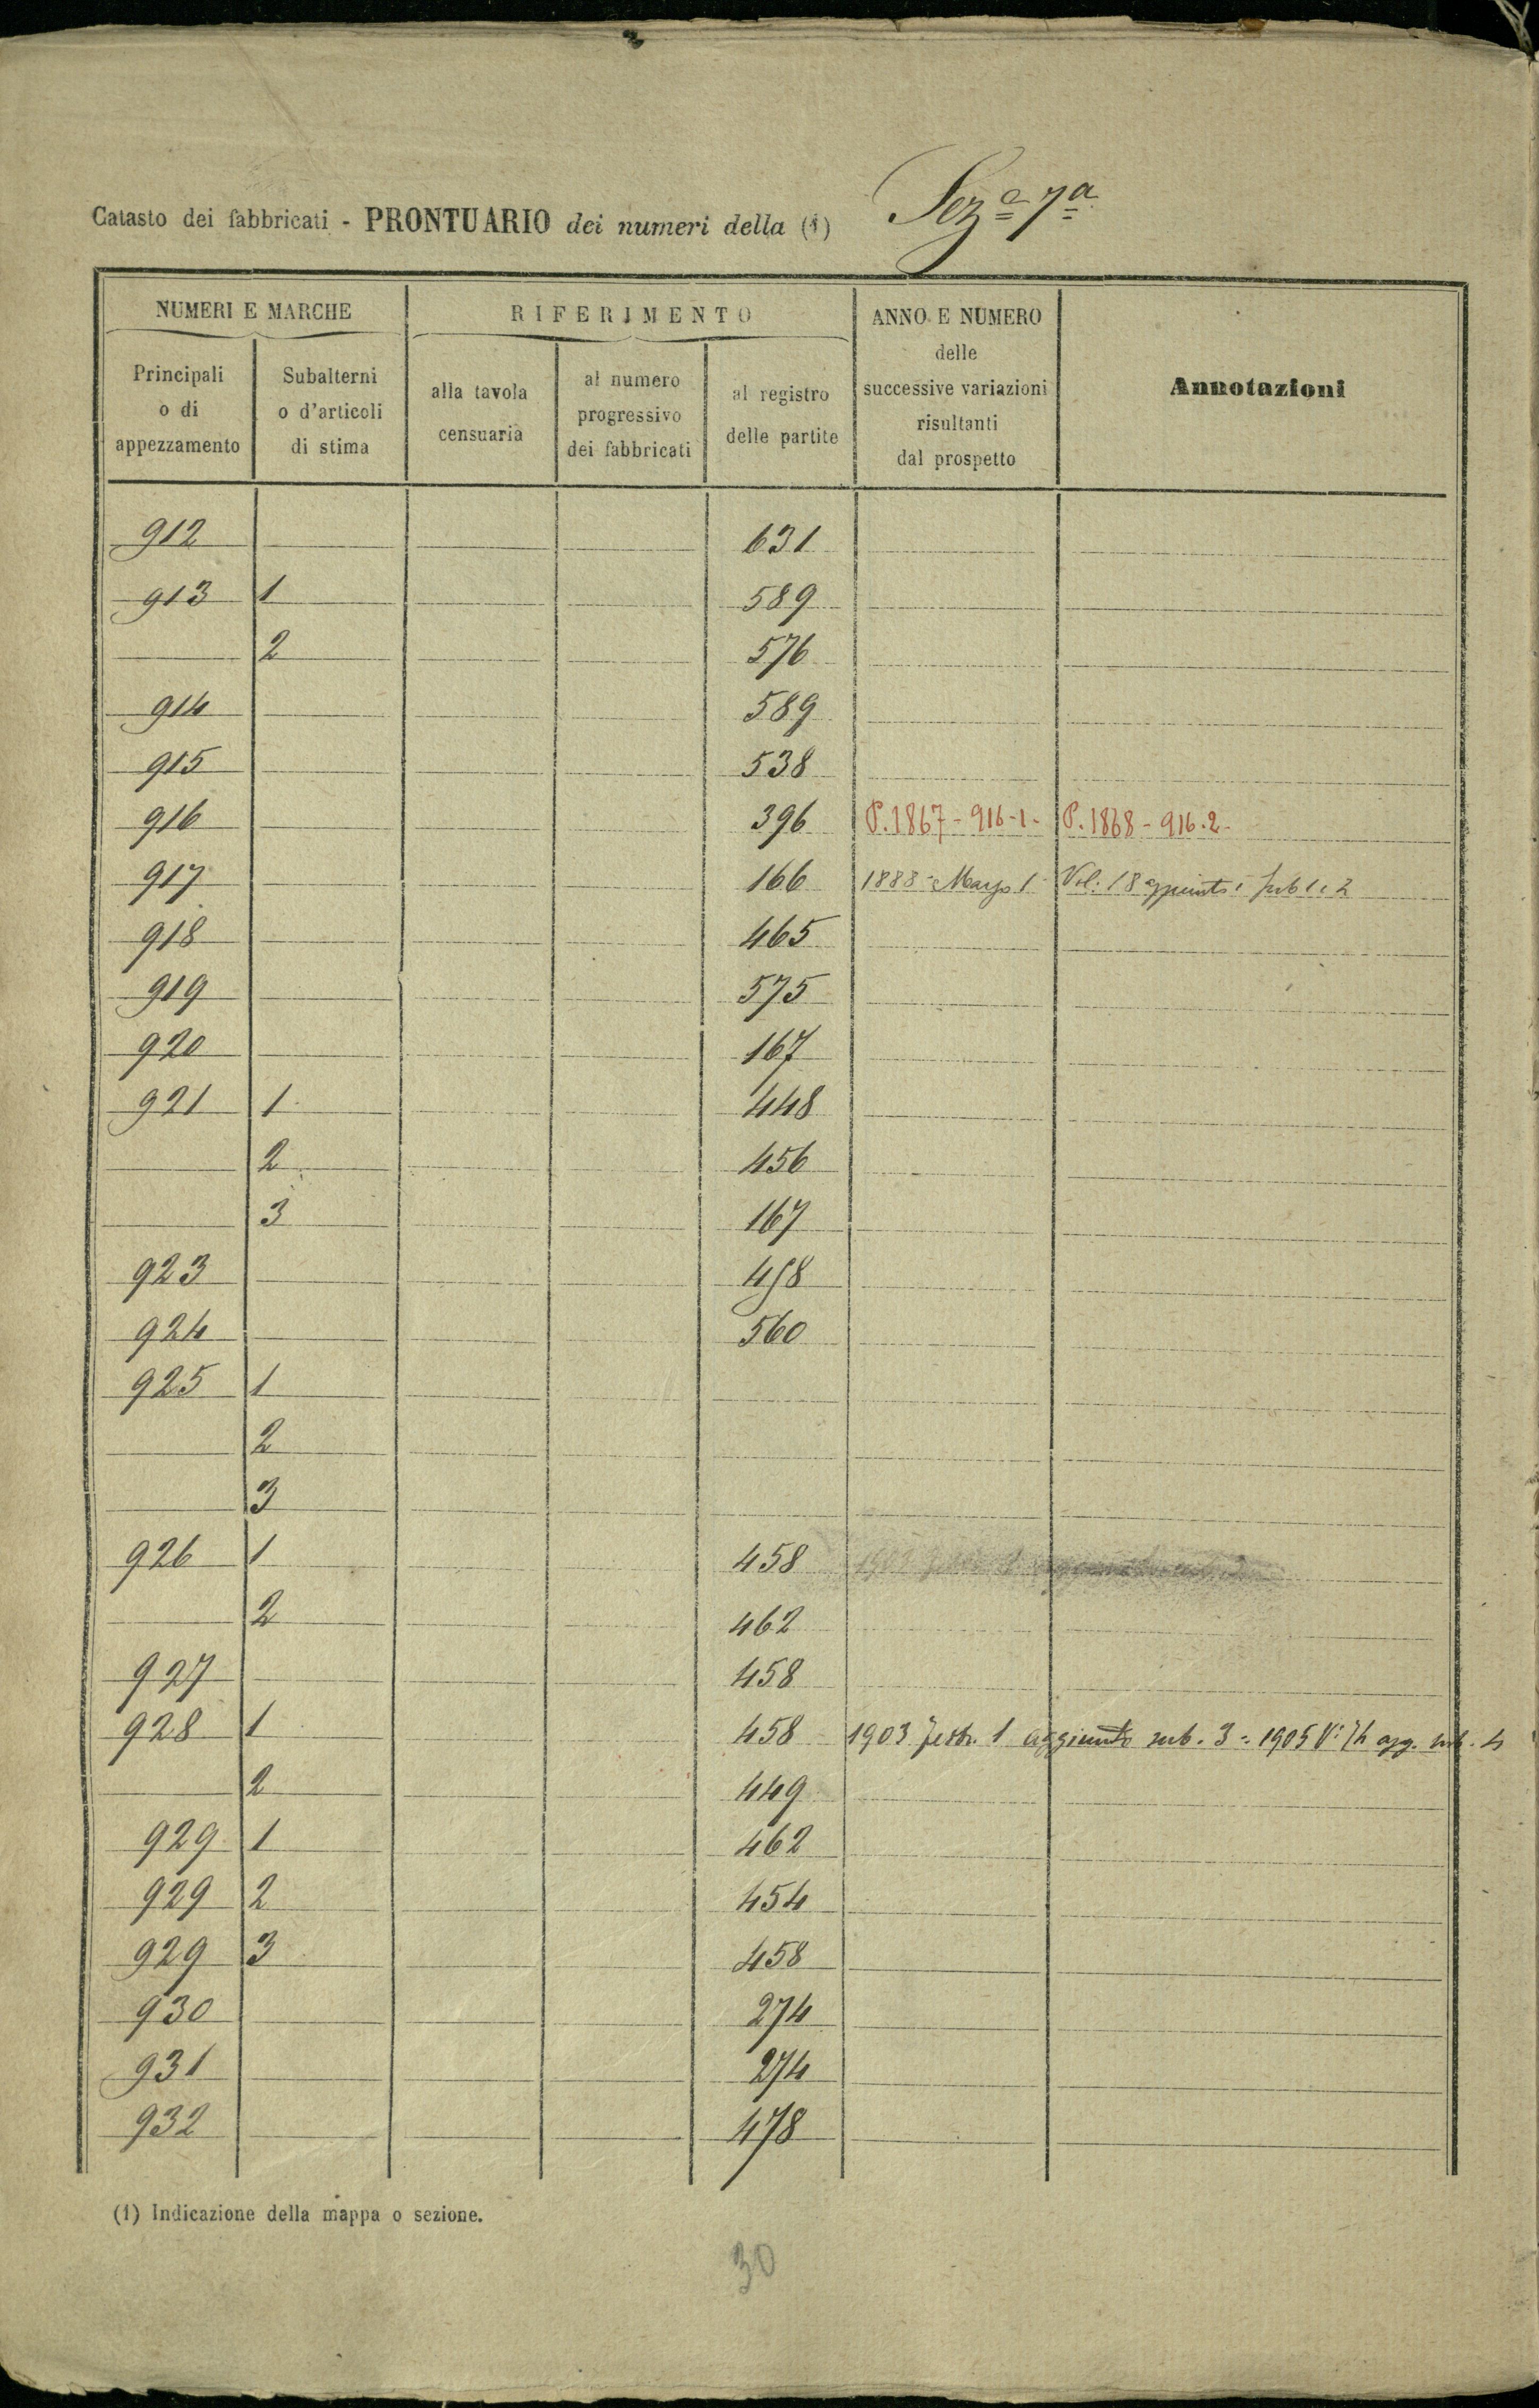 Catasto dei fabbricati - PRONTUARIO dei numeri della (1) Sez.e 7a
NUMERI E MARCHE
RIFERIMENTO
ANNO E NUMERO
delle
successive variazioni
risultanti
dal prospetto
Annotazioni
Principali
o di
appezzamento
Subalterni
o d'articoli
di stima
alla tavola
censuaria
al numero
progressivo
dei fabbricati
al registro
delle partite
912 631
913 1 589
2 576
914 589
915 538
916 396 P. 1867 - 916-1- P. 1868 - 916.2-
917 166 1888 - Marzo 1 Vol: 18 sub 1 e 2
918 465
919 575
920 167
921 1 448
2 456
3 167
923 458
924 560
925 1
2
3
926 1 458 1902
2 462
927 458
928 1 458 1903 febbr. 1 aggiunto sub. 3 = 1905 agg. sub. 4
2 449
929 1 462
929 2 454
929 3 458
930 274
931 274
932 478
(1) Indicazione della mappa o sezione.
30